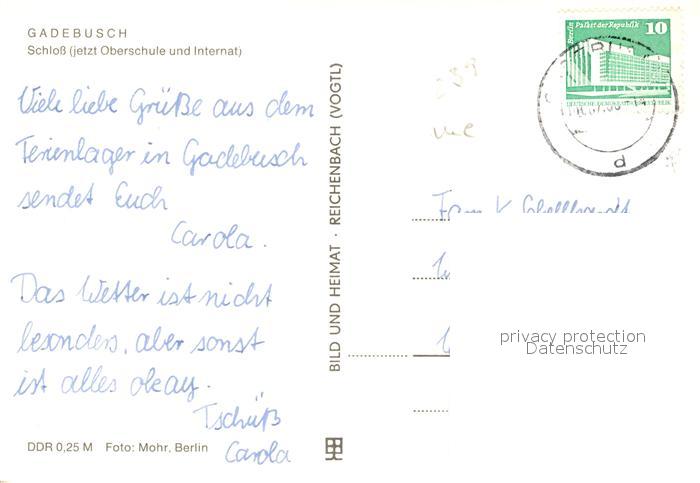 GADEBUSCH
Schloß (jetzt Oberschule und Internat)
Viele liebe Grüße aus dem
Ferienlager in Gadebusch
sendet Euch
Carola.
Das Wetter ist nicht
besonders, aber sonst
ist alles okay.
Tschüß
Carola
DDR 0,25 M Foto: Mohr, Berlin
BILD UND HEIMAT · REICHENBACH (VOGTL)
Berlin Palast der Republik 10
DEUTSCHE DEMOKRATISCHE REPUBLIK
d
Fam
privacy protection
Datenschutz